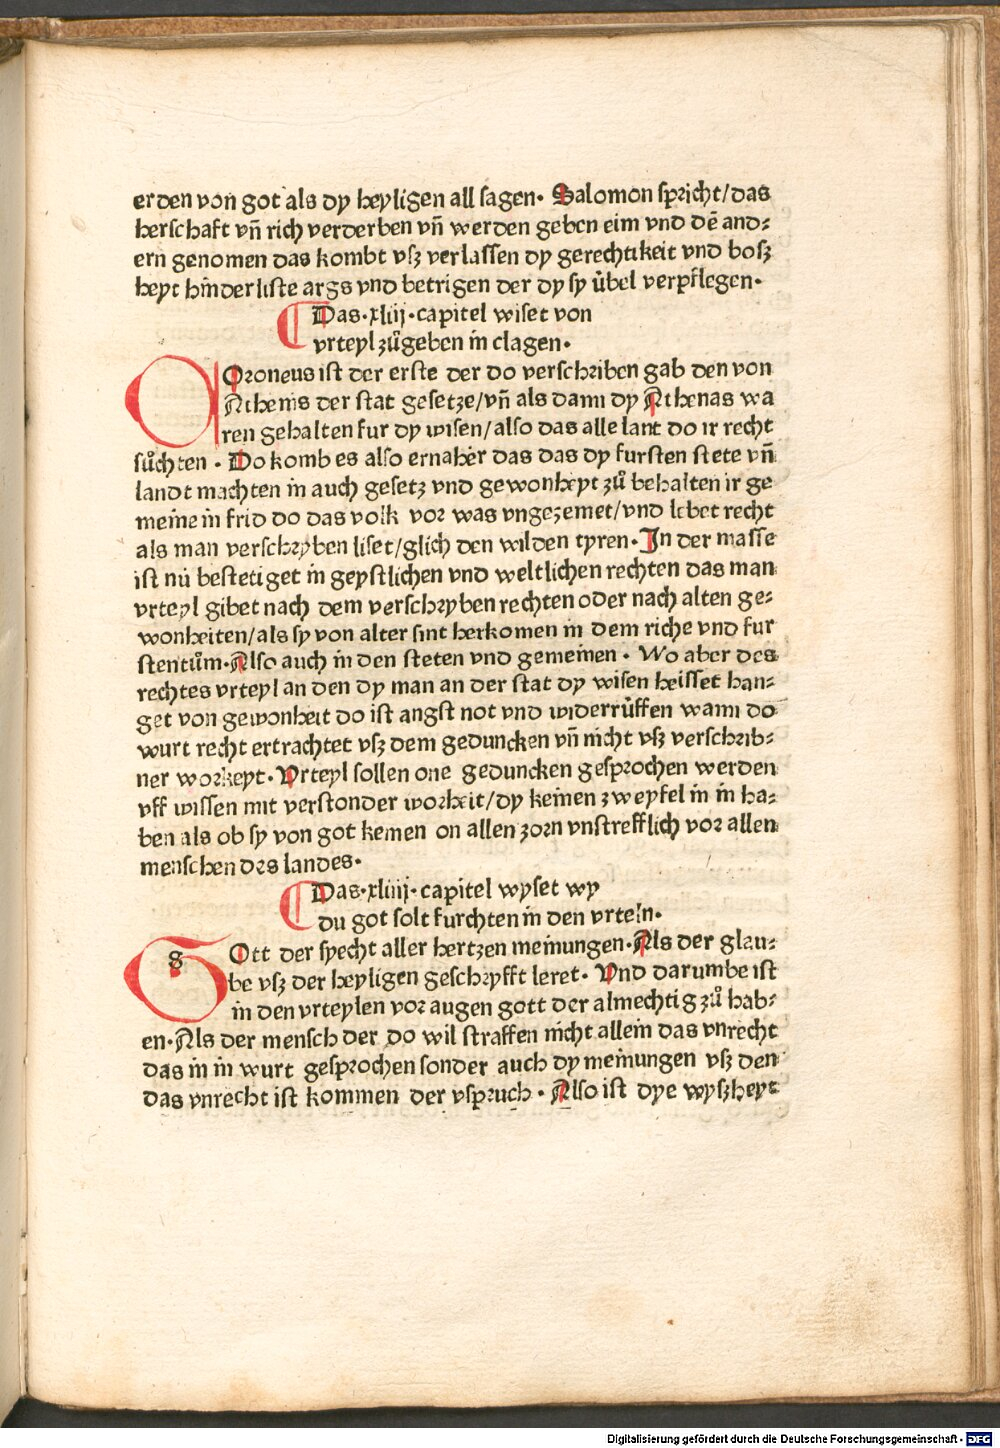 erden von got als dy heyligen all sagen. Salomon spricht/das
herschaft vn̄ rich verderben vn̄ werden geben eim vnd dē and⸗
ern genomen das kombt vſz verlassen dy gerechtikeit vnd bosz
heyt hinderliste args vnd betrigen der dy sy ůbel verpflegen.
Das.xliij.capitel wiset von
vrteyl zůgeben in clagen.
Oroneus ist der erste der do verschriben gab den von
Athenis der stat gesetze/vn̄ als dann dy Athenas wa
ren gehalten fur dy wisen/also das alle lant do ir recht
sůchten . Do komb es also ernaher das das dy fursten stete vn̄
landt machten in auch gesetz vnd gewonheyt zů behalten ir ge
meine in frid do das volk vor was vngezemet/vnd lebet recht
als man verschryben liset/glich den wilden tyren. In der masse
ist nu bestetiget in geystlichen vnd weltlichen rechten das man
vrteyl gibet nach dem verschryben rechten oder nach alten ge⸗
wonheiten/als sy von alter sint herkomen in dem riche vnd fur
stentům.Also auch in den steten vnd gemeinen . Wo aber des
rechtes vrteyl an den dy man an der stat dy wisen heisset han⸗
get von gewonheit do ist angst not vnd widerrůffen wann do
wurt recht ertrachtet vſz dem geduncken vn̄ nicht vſz verschrib⸗
ner workeyt. Vrteyl sollen one geduncken gesprochen werden
vff wissen mit verstonder worheit/dy keinen zweyfel in in ha⸗
ben als ob sy von got kemen on allen zorn vnstrefflich vor allen
menschen des landes.
Das.xliiij.capitel wyset wy
du got solt furchten in den vrteln.
g Ott der specht aller hertzen meinungen.Als der glau⸗
be vſz der heyligen geschryfft leret. Vnd darumbe ist
in den vrteylen vor augen gott der almechtig zů hab⸗
en.Als der mensch der do wil straffen nicht allein das vnrecht
das in in wurt gesprochen sonder auch dy meinungen vſz den
das vnrecht ist kommen der vspruch . Also ist dye wyszheyt
Digitalisierung gefördert durch die Deutsche Forschungsgemeinschaft - DFG